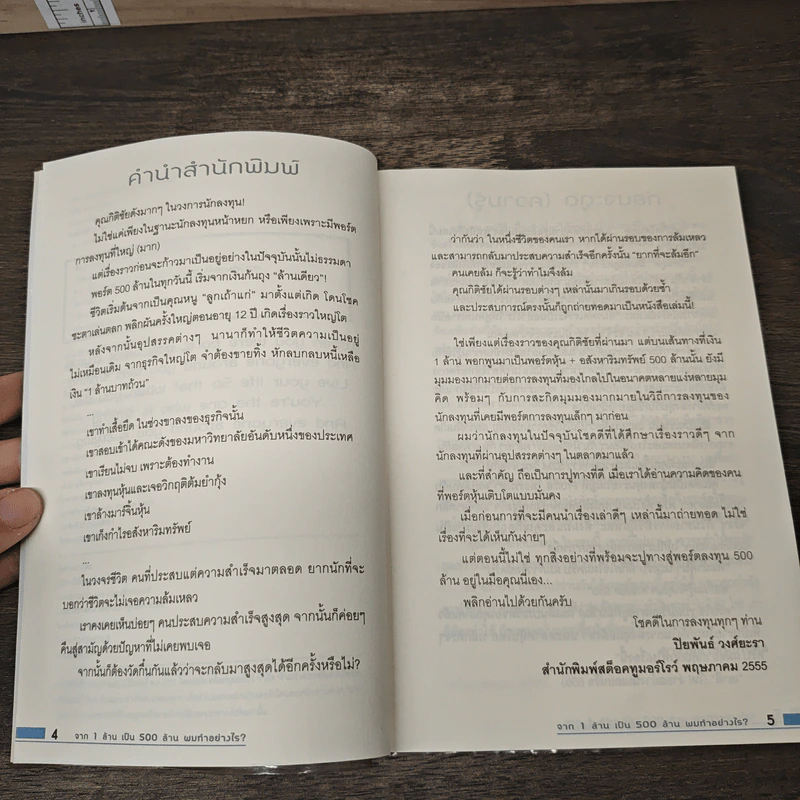 inches
คำนำสำนักพิมพ์
คุณกิติชัยดังมากๆ ในวงการนักลงทุน!
ไม่ใช่แค่เพียงในฐานะนักลงทุนหน้าหยก หรือเพียงเพราะมีพอร์ต
การลงทุนที่ใหญ่ (มาก)
แต่เรื่องราวก่อนจะก้าวมาเป็นอยู่อย่างในปัจจุบันนั้นไม่ธรรมดา
พอร์ต 500 ล้านในทุกวันนี้ เริ่มจากเงินก้นถุง "ล้านเดียว"!
ชีวิตเริ่มต้นจากเป็นคุณหนู "ลูกเถ้าแก่" มาตั้งแต่เกิด โดนโชค
ชะตาเล่นตลก พลิกผันครั้งใหญ่ตอนอายุ 12 ปี เกิดเรื่องราวใหญ่โต
หลังจากนั้นอุปสรรคต่างๆ นานาก็ทำให้ชีวิตความเป็นอยู่
ไม่เหมือนเดิม จากธุรกิจใหญ่โต จำต้องขายทิ้ง หักลบกลบหนี้เหลือ
เงิน "1 ล้านบาทถ้วน"
...
เขาทำเสื้อยืด ในช่วงขาลงของธุรกิจนั้น
เขาสอบเข้าได้คณะดังของมหาวิทยาลัยอันดับหนึ่งของประเทศ
เขาเรียนไม่จบ เพราะต้องทำงาน
เขาลงทุนหุ้นและเจอวิกฤติต้มยำกุ้ง
เขาล้างมาร์จิ้นหุ้น
เขาเก็งกำไรอสังหาริมทรัพย์
...
ในวงจรชีวิต คนที่ประสบแต่ความสำเร็จมาตลอด ยากนักที่จะ
บอกว่าชีวิตจะไม่เจอความล้มเหลว
เราคงเคยเห็นบ่อยๆ คนประสบความสำเร็จสูงสุด จากนั้นก็ค่อยๆ
คืนสู่สามัญด้วยปัญหาที่ไม่เคยพบเจอ
จากนั้นก็ต้องวัดกึ๋นกันแล้วว่าจะกลับมาสูงสุดได้อีกครั้งหรือไม่?
4 จาก 1 ล้าน เป็น 500 ล้าน ผมทำอย่างไร?
ว่ากันว่า ในหนึ่งชีวิตของคนเรา หากได้ผ่านรอบของการล้มเหลว
และสามารถกลับมาประสบความสำเร็จอีกครั้งนั้น "ยากที่จะล้มอีก"
คนเคยล้ม ก็จะรู้ว่าทำไมจึงล้ม
คุณกิติชัยได้ผ่านรอบต่างๆ เหล่านั้นมาเกินรอบด้วยซ้ำ
และประสบการณ์ตรงนั้นก็ถูกถ่ายทอดมาเป็นหนังสือเล่มนี้!
ใช่เพียงแต่เรื่องราวของคุณกิติชัยที่ผ่านมา แต่บนเส้นทางที่เงิน
1 ล้าน พอกพูนมาเป็นพอร์ตหุ้น + อสังหาริมทรัพย์ 500 ล้านนั้น ยังมี
มุมมองมากมายต่อการลงทุนที่มองไกลไปในอนาคตหลายแง่หลายมุม
คิด พร้อมๆ กับการสะกิดมุมมองมากมายในวิถีการลงทุนของ
นักลงทุนที่เคยมีพอร์ตการลงทุนเล็กๆ มาก่อน
ผมว่านักลงทุนในปัจจุบันโชคดีที่ได้ศึกษาเรื่องราวดีๆ จาก
นักลงทุนที่ผ่านอุปสรรคต่างๆ ในตลาดมาแล้ว
และที่สำคัญ ถือเป็นการปูทางที่ดี เมื่อเราได้อ่านความคิดของคน
ที่พอร์ตหุ้นเติบโตแบบมั่นคง
เมื่อก่อนการที่จะมีคนนำเรื่องเล่าดีๆ เหล่านี้มาถ่ายทอด ไม่ใช่
เรื่องที่จะได้เห็นกันง่ายๆ
แต่ตอนนี้ไม่ใช่ ทุกสิ่งอย่างที่พร้อมจะปูทางสู่พอร์ตลงทุน 500
ล้าน อยู่ในมือคุณนี่เอง...
พลิกอ่านไปด้วยกันครับ
โชคดีในการลงทุนทุกๆ ท่าน
ปิยพันธ์ วงศ์ยะรา
สำนักพิมพ์สต็อคทูมอร์โรว์ พฤษภาคม 2555
จาก 1 ล้าน เป็น 500 ล้าน ผมทำอย่างไร? 5